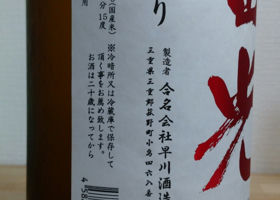 光
り
製造者 合名会社早川酒造
三重県三重郡菰野町小島四六八番
(国産米)
分15度
※冷暗所又は冷蔵庫で保存して
頂く事をお薦め致します。
お酒は二十歳になってから
用